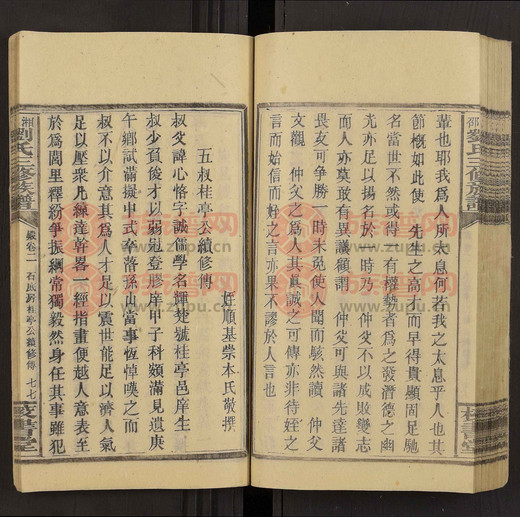 邵
劉氏三修族譜
輩也耶我爲人所太息何若我之太息乎人也其
節概如此使 先生之高才而早得貴顯固足馳
名當世不然或得一有權勢者爲之發潛德之幽
光亦足以揚名於 時乃 仲父不以成敗變志
而人亦莫敢有異議顧謂 仲父可與諸先達諸
畏友可爭勝一時未免使人聞而駭然讀 仲父
文觀 仲父之爲人其真誠之可傳亦非待姪之
言而始信而姪之言亦果不謬於人言也
五叔桂亭公續修傳
姪順基崇本氏敬撰
叔父諱心恪字誠儒學名輝斐號桂亭邑庠生
叔少負俊才以弱冠登膠庠甲子科頗滿見遺庚
午鄉試滿擬中式卒落孫山當事恆悼嘆之而
叔不以介意其爲人才足以震世能足以濟人氣
足以壓衆凡練達幹畧一經指畫便越人意表至
於爲閭里釋紛爭振綱常獨毅然身任其事雖犯
湘
劉氏三修族譜
卷二
桂亭公續修傳
七七